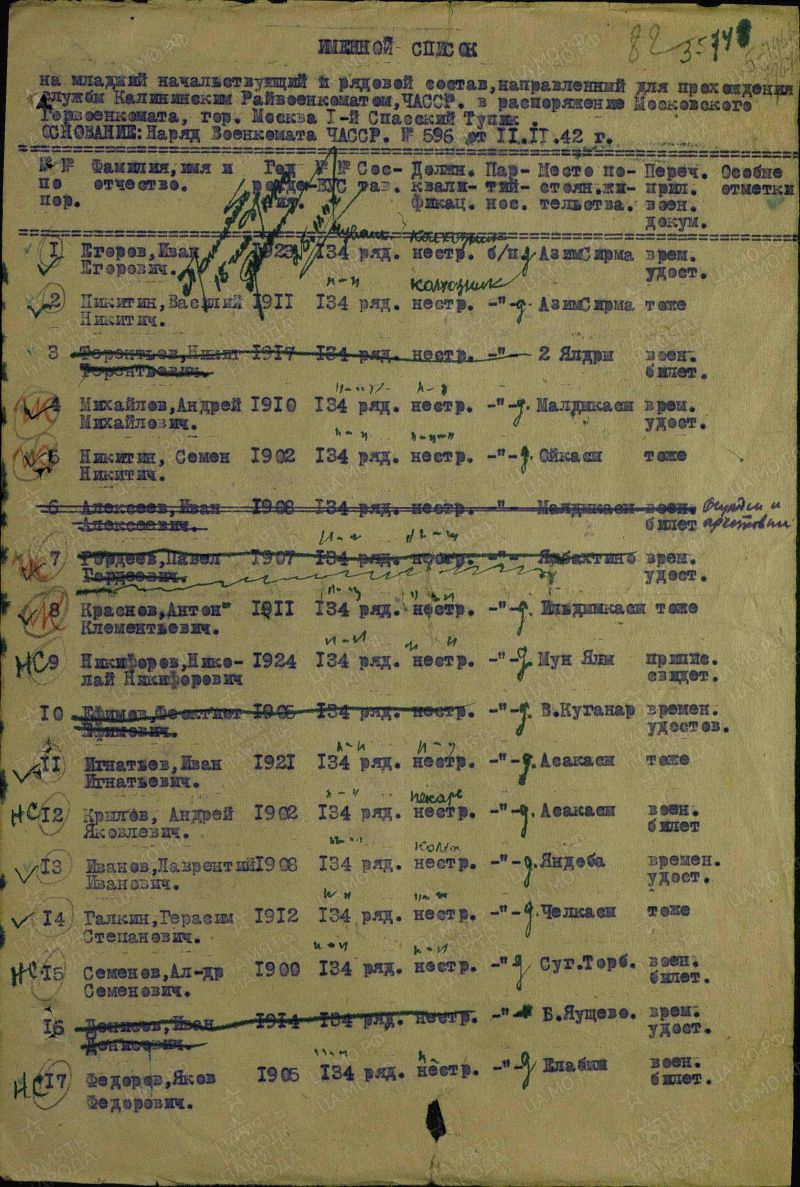 82 35748
ИМЕННОЙ СПИСОК
на младший начальствующий и рядовой состав, направленный для прохождения
службы Калининским Райвоенкоматом, ЧАССР. в распоряжение Московского
Горвоенкомата, гор. Москва I-й Спасский Тупик.
ОСНОВАНИЕ: Наряд Военкомата ЧАССР. № 596 от II.II.42 г.
№ № Фамилия, имя и Год № № Сос- Должн. Пар- Место по- Переч. Особые
по отчество. рожде- ВУС тав. квали- тий- стоян.жи- прил. отметки
пор. ия. фикац. нос. тельства. воен.
докум.
чуваш колхозник
I Егоров, Иван 1923 I34 ряд. нестр. б/п д АзимСирма врем.
Егорович. удост.
п-п колхозник
2 Никитин, Василий I9II I34 ряд. нестр. -"- д. АзимСирма тоже
Никитич.
3 Терентьев, Никит I9I7 I34 ряд. нестр. -"- 2 Ялдры воен.
Терентьевич. билет.
4 Михайлов, Андрей I9I0 I34 ряд. нестр. -"- д. Малдыкасы врем.
Михайлович. удост.
5 Никитин, Семен I902 I34 ряд. нестр. -"- д. Ойкасы тоже
Никитич.
6 Алексеев, Иван I908 I34 ряд. нестр. -"- Малдыкасы воен. Осужден и
Алексеевич. билет арестован
7 Гордеев, Павел I907 I34 ряд. нестр. -"- Ярбахтино врем.
Гордеевич. удост.
8 Краснов, Антон I9II I34 ряд. нестр. -"- д. Ильдымкасы тоже
Клементьевич.
НС 9 Никифоров, Нико- I924 I34 ряд. нестр. -"- д Мун Ялы припис.
лай Никифорович свидет.
I0 Ефимов, Феоктист I905 I34 ряд. нестр. -"- д. В.Куганар времен.
Ефимович. удостов.
II Игнатьев, Иван I92I I34 ряд. нестр. -"- д. Асакасы тоже
Игнатьевич.
пекарь
НС I2 Крылов, Андрей I902 I34 ряд. нестр. -"- д. Асакасы воен.
Яковлевич. билет
колхоз
I3 Иванов, Лаврентий I908 I34 ряд. нестр. -"- д. Яндеба времен.
Иванович. удост.
I4 Галкин, Герасим I9I2 I34 ряд. нестр. -"- д. Челкасы тоже
Степанович.
НС I5 Семенов, Ал-др I900 I34 ряд. нестр. -"- д Суг.Торб. воен.
Семенович. билет.
I6 Денисов, Иван I9I4 I34 ряд. нестр. -"- Б.Яушево. врем.
Денисович. удост.
НС I7 Федоров, Яков I905 I34 ряд. нестр. -"- д Елабыш воен.
Федорович. билет.